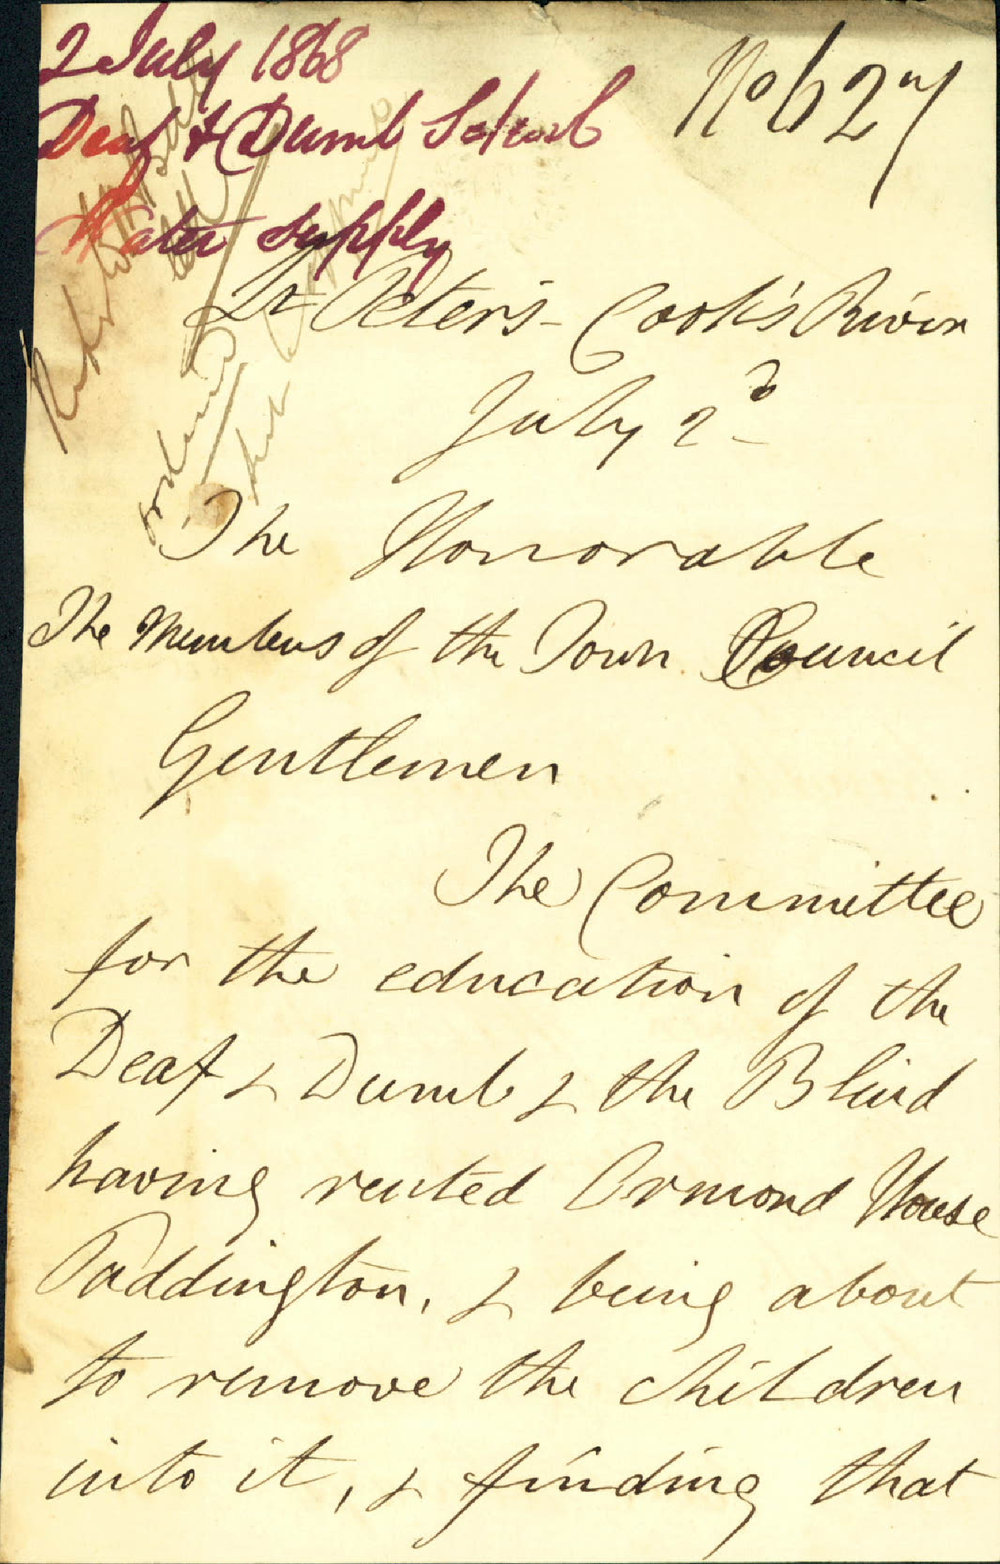 2 July 1868
Deaf & Dumb School
No 627
Water supply
St Peter's - Cook's River
July 2d
The Honorable
The Members of the Town Council
Gentlemen
The Committee
for the education of the
Deaf & Dumb & the Blind
having rented Ormond House
Paddington, & being about
to remove the children
into it, & finding that